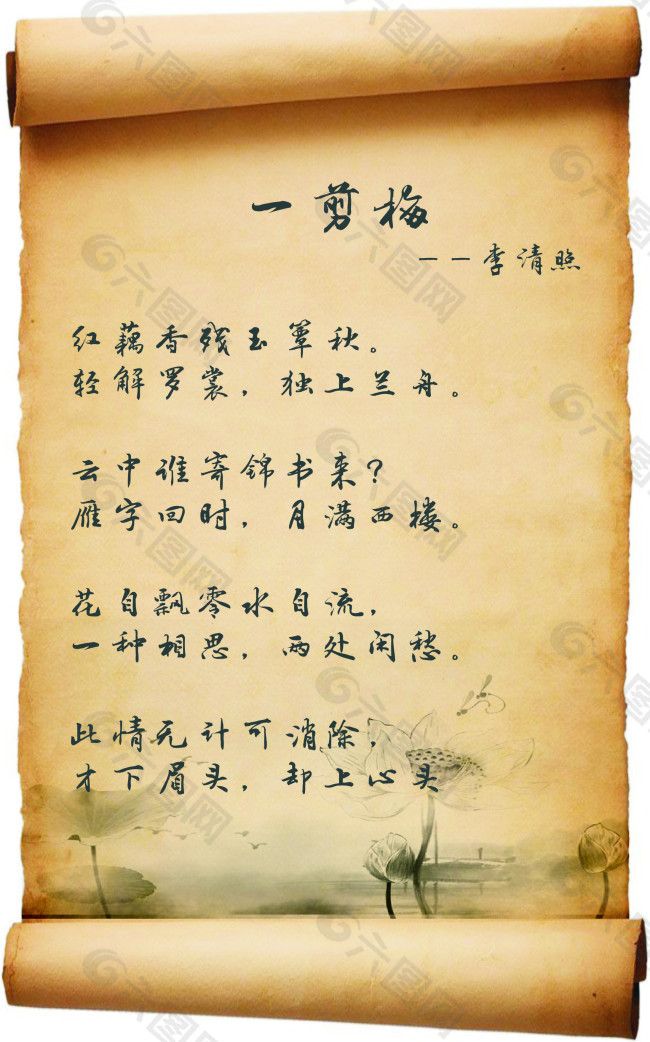 一剪梅
——李清照
红藕香残玉簟秋。
轻解罗裳，独上兰舟。
云中谁寄锦书来？
雁字回时，月满西楼。
花自飘零水自流，
一种相思，两处闲愁。
此情无计可消除，
才下眉头，却上心头
六图网